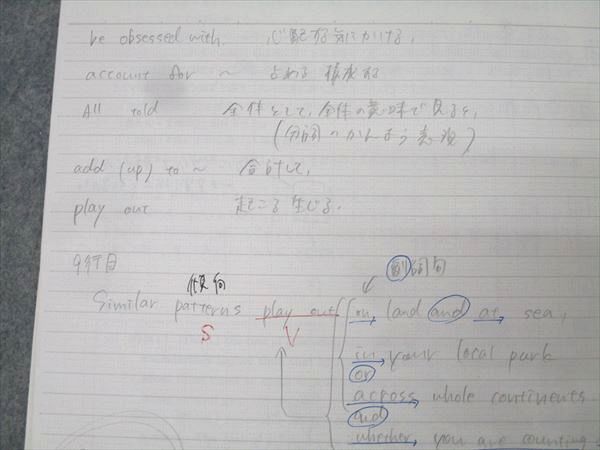 be obsessed with. 心配する気にかける,
account for ~ 占める 構成する
All told 全体として, 全体の意味で見ると,
(分詞のかんよう表現)
add (up) to ~ 合計して,
play out 起こる 生じる.
9行目
傾向 副詞句
Similar patterns play out on land and at sea,
S V
in your local park
or
across whole continents
and
whether you are counting